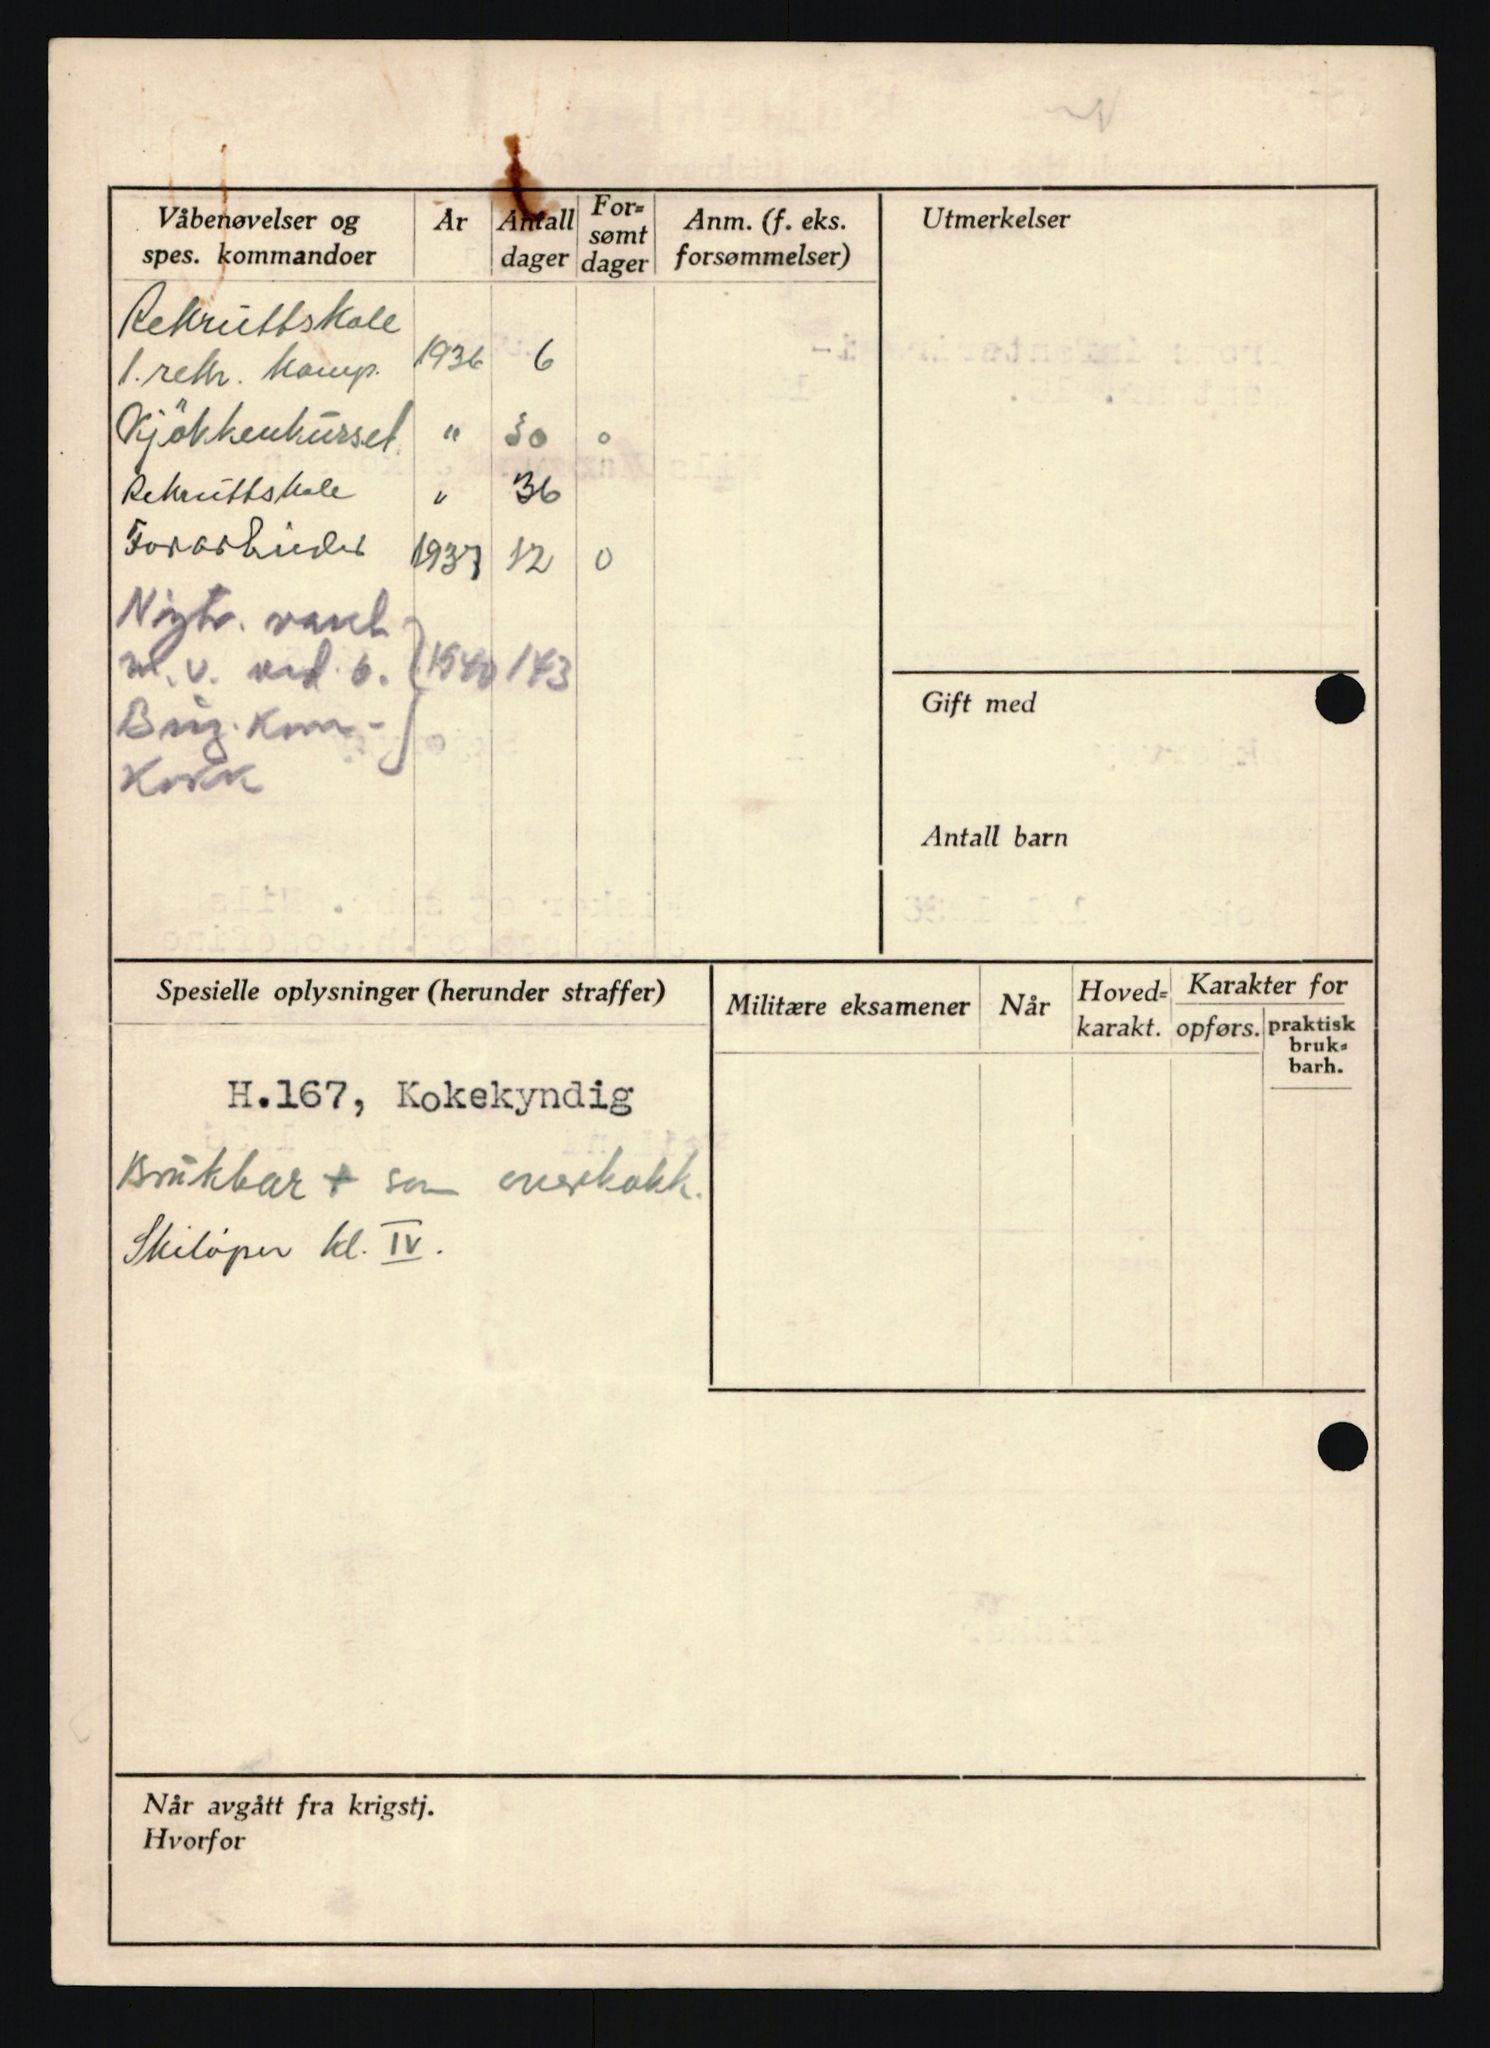 Våbenøvelser og
spes. kommandoer
År
Antall
dager
For-
sømt
dager
Anm. (f. eks.
forsømmelser)
Utmerkelser
Rekruttskole
1. rekr. komp. 1936 6
Kjökkenkurset. " 30 0
Rekruttskole " 36
Forarbeider 1937 12 0
Nøytr. vakt
m. v. ved 6. 1940 143
Brig. Kom-
Kokk
Gift med
Antall barn
Spesielle oplysninger (herunder straffer)
Militære eksamener
Når
Hoved-
karakt.
Karakter for
opførs.
praktisk
bruk-
barh.
H.167, Kokekyndig
Brukbar + som overkokk.
Skiløper kl. IV.
Når avgått fra krigstj.
Hvorfor